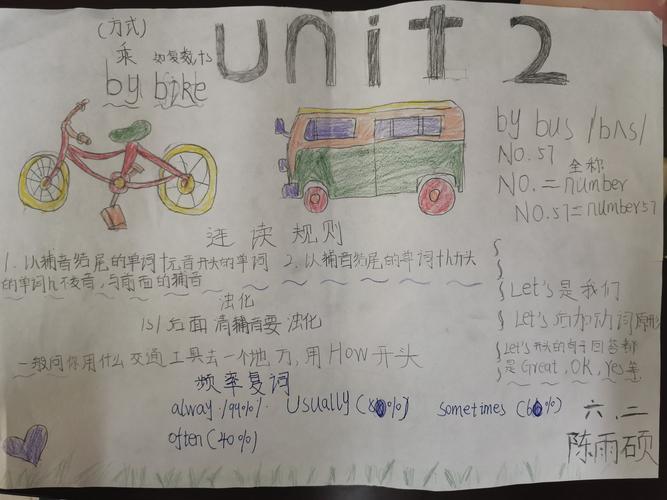 unit 2
(方式)
乘
by bike
by bus /bʌs/
NO.57
全称
NO.=number
NO.57=number57
连读规则
1.以辅音结尾的单词+元音开头的单词 2.以辅音结尾的单词+h开头
的单词h不发音,与前面的辅音
浊化
/s/后面清辅音要浊化
一般问你用什么交通工具去一个地方,用How开头
Let's是我们
Let's后加动词原形
Let's开头的句子回答都
是Great,OK,Yes等
频率复词
alway.(99%). Usually(80%) sometimes(60%)
often(40%)
六.二
陈雨硕